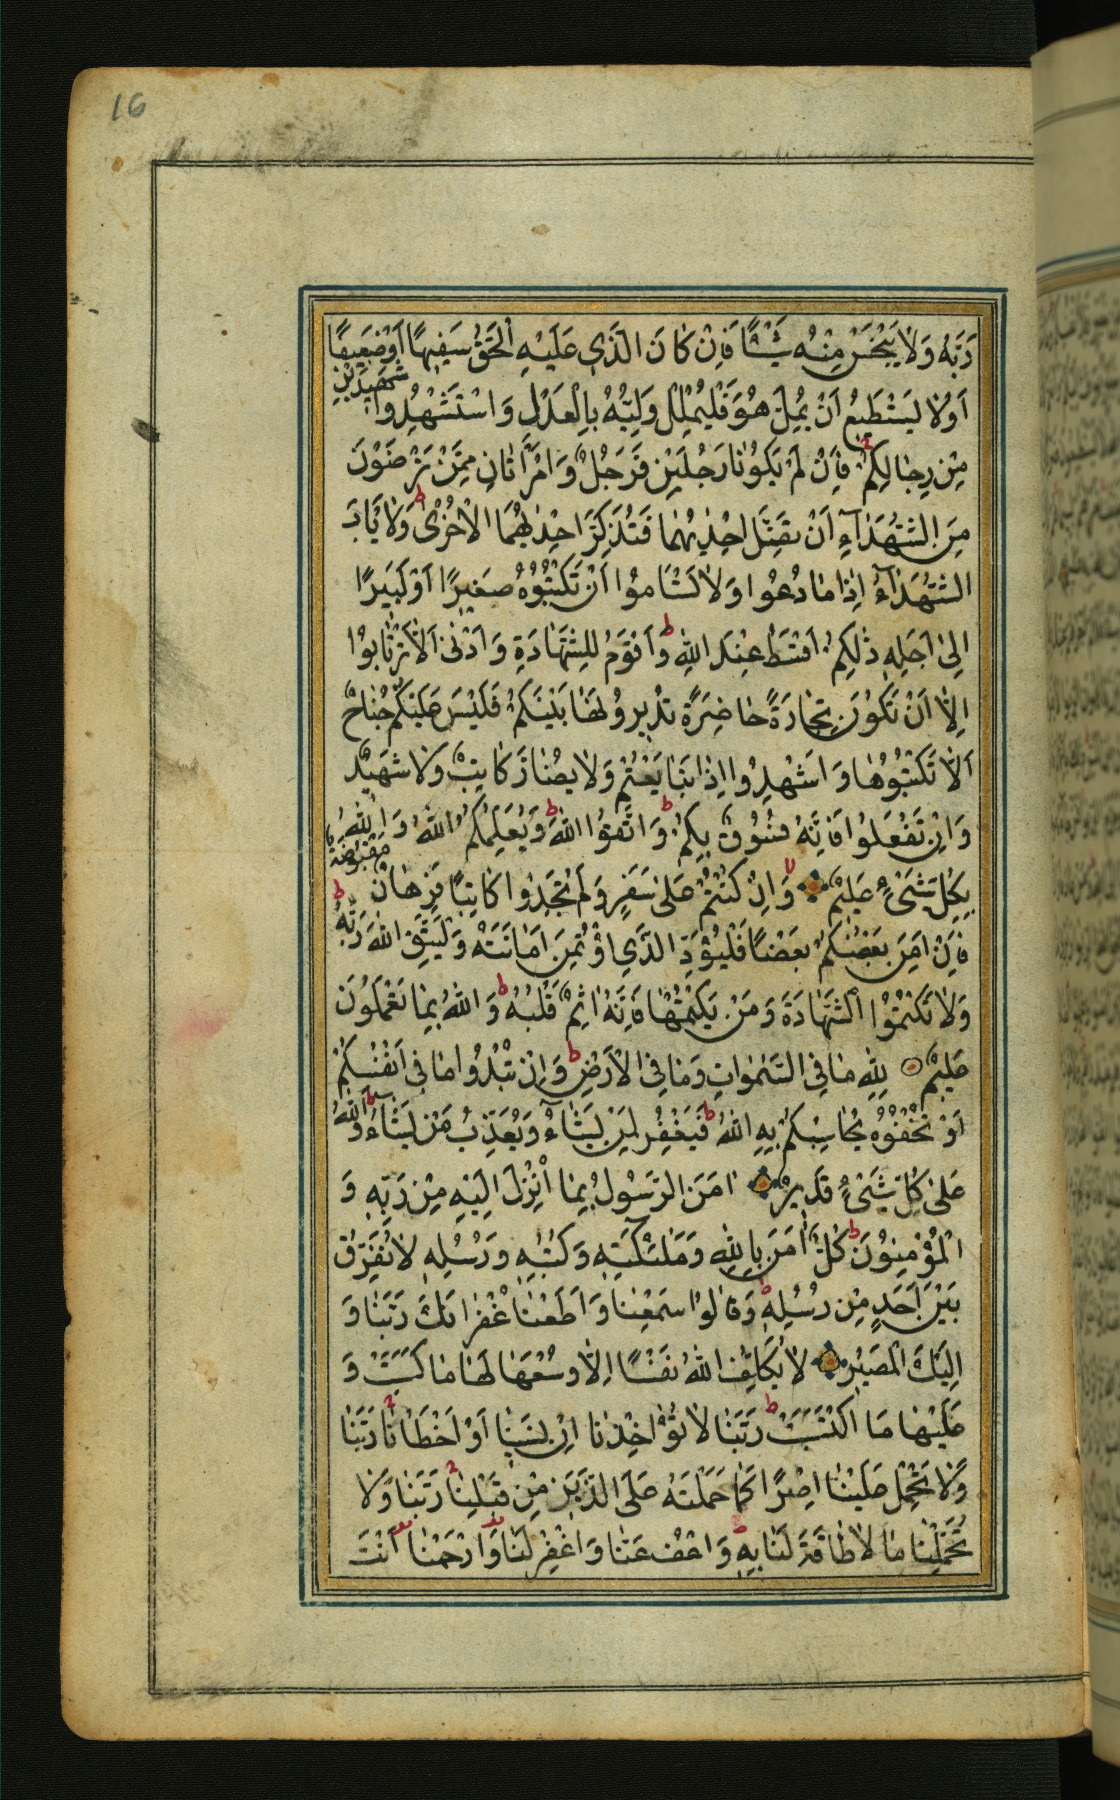 16
رَبَّهُ وَلَا يَبْخَسْ مِنْهُ شَيْئًا فَاِنْ كَانَ الَّذِي عَلَيْهِ الْحَقُّ سَفِيهًا اَوْ ضَعِيفًا
اَوْ لَا يَسْتَطِيعُ اَنْ يُمِلَّ هُوَ فَلْيُمْلِلْ وَلِيُّهُ بِالْعَدْلِ وَاسْتَشْهِدُوا شَهِيدَيْنِ
مِنْ رِجَالِكُمْ فَاِنْ لَمْ يَكُونَا رَجُلَيْنِ فَرَجُلٌ وَامْرَاَتَانِ مِمَّنْ تَرْضَوْنَ
مِنَ الشُّهَدَآءِ اَنْ تَضِلَّ اِحْدٰيهُمَا فَتُذَكِّرَ اِحْدٰيهُمَا الْاُخْرٰى وَلَا يَاْبَ
الشُّهَدَآءُ اِذَا مَا دُعُوا وَلَا تَسْاَمُوا اَنْ تَكْتُبُوهُ صَغِيرًا اَوْ كَبِيرًا
اِلٰى اَجَلِهِ ذٰلِكُمْ اَقْسَطُ عِنْدَ اللّٰهِ وَاَقْوَمُ لِلشَّهَادَةِ وَاَدْنٰى اَلَّا تَرْتَابُوا
اِلَّا اَنْ تَكُونَ تِجَارَةً حَاضِرَةً تُدِيرُونَهَا بَيْنَكُمْ فَلَيْسَ عَلَيْكُمْ جُنَاحٌ
اَلَّا تَكْتُبُوهَا وَاَشْهِدُوا اِذَا تَبَايَعْتُمْ وَلَا يُضَارَّ كَاتِبٌ وَلَا شَهِيدٌ
وَاِنْ تَفْعَلُوا فَاِنَّهُ فُسُوقٌ بِكُمْ وَاتَّقُوا اللّٰهَ وَيُعَلِّمُكُمُ اللّٰهُ وَاللّٰهُ
بِكُلِّ شَيْءٍ عَلِيمٌ وَاِنْ كُنْتُمْ عَلٰى سَفَرٍ وَلَمْ تَجِدُوا كَاتِبًا فَرِهَانٌ مَقْبُوضَةٌ
فَاِنْ اَمِنَ بَعْضُكُمْ بَعْضًا فَلْيُؤَدِّ الَّذِي اؤْتُمِنَ اَمَانَتَهُ وَلْيَتَّقِ اللّٰهَ رَبَّهُ
وَلَا تَكْتُمُوا الشَّهَادَةَ وَمَنْ يَكْتُمْهَا فَاِنَّهُ اٰثِمٌ قَلْبُهُ وَاللّٰهُ بِمَا تَعْمَلُونَ
عَلِيمٌ لِلّٰهِ مَا فِي السَّمٰوَاتِ وَمَا فِي الْاَرْضِ وَاِنْ تُبْدُوا مَا فِي اَنْفُسِكُمْ
اَوْ تُخْفُوهُ يُحَاسِبْكُمْ بِهِ اللّٰهُ فَيَغْفِرُ لِمَنْ يَشَآءُ وَيُعَذِّبُ مَنْ يَشَآءُ وَاللّٰهُ
عَلٰى كُلِّ شَيْءٍ قَدِيرٌ اٰمَنَ الرَّسُولُ بِمَا اُنْزِلَ اِلَيْهِ مِنْ رَبِّهِ وَ
الْمُؤْمِنُونَ كُلٌّ اٰمَنَ بِاللّٰهِ وَمَلٰئِكَتِهِ وَكُتُبِهِ وَرُسُلِهِ لَا نُفَرِّقُ
بَيْنَ اَحَدٍ مِنْ رُسُلِهِ وَقَالُوا سَمِعْنَا وَاَطَعْنَا غُفْرَانَكَ رَبَّنَا وَ
اِلَيْكَ الْمَصِيرُ لَا يُكَلِّفُ اللّٰهُ نَفْسًا اِلَّا وُسْعَهَا لَهَا مَا كَسَبَتْ وَ
عَلَيْهَا مَا اكْتَسَبَتْ رَبَّنَا لَا تُؤَاخِذْنَا اِنْ نَسِينَا اَوْ اَخْطَاْنَا رَبَّنَا
وَلَا تَحْمِلْ عَلَيْنَا اِصْرًا كَمَا حَمَلْتَهُ عَلَى الَّذِينَ مِنْ قَبْلِنَا رَبَّنَا وَلَا
تُحَمِّلْنَا مَا لَا طَاقَةَ لَنَا بِهِ وَاعْفُ عَنَّا وَاغْفِرْ لَنَا وَارْحَمْنَا اَنْتَ